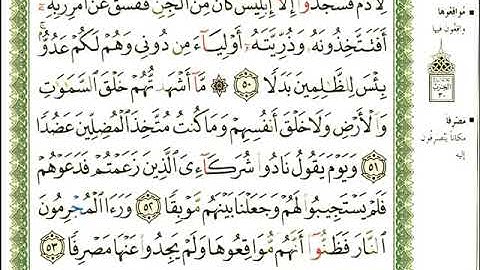 لِأٓدَمَ فَسَجَدُوٓا۟ إِلَّآ إِبْلِيسَ كَانَ مِنَ ٱلْجِنِّ فَفَسَقَ عَنْ أَمْرِ رَبِّهِۦٓ ۗ
أَفَتَتَّخِذُونَهُۥ وَذُرِّيَّتَهُۥٓ أَوْلِيَآءَ مِن دُونِى وَهُمْ لَكُمْ عَدُوٌّۢ ۚ
بِئْسَ لِلظَّٰلِمِينَ بَدَلًا ٥٠ ۞ مَّآ أَشْهَدتُّهُمْ خَلْقَ ٱلسَّمَٰوَٰتِ
وَٱلْأَرْضِ وَلَا خَلْقَ أَنفُسِهِمْ وَمَا كُنتُ مُتَّخِذَ ٱلْمُضِلِّينَ عَضُدًا
٥١ وَيَوْمَ يَقُولُ نَادُوا۟ شُرَكَآءِىَ ٱلَّذِينَ زَعَمْتُمْ فَدَعَوْهُمْ
فَلَمْ يَسْتَجِيبُوا۟ لَهُمْ وَجَعَلْنَا بَيْنَهُم مَّوْبِقًا ٥٢ وَرَءَا ٱلْمُجْرِمُونَ
ٱلنَّارَ فَظَنُّوٓا۟ أَنَّهُم مُّوَاقِعُوهَا وَلَمْ يَجِدُوا۟ عَنْهَا مَصْرِفًا ٥٣
مُواقِعُوها
واقعون فيها
الحزب
٣٠
مَصْرِفًا
مكاناً ينصرفون
إليه